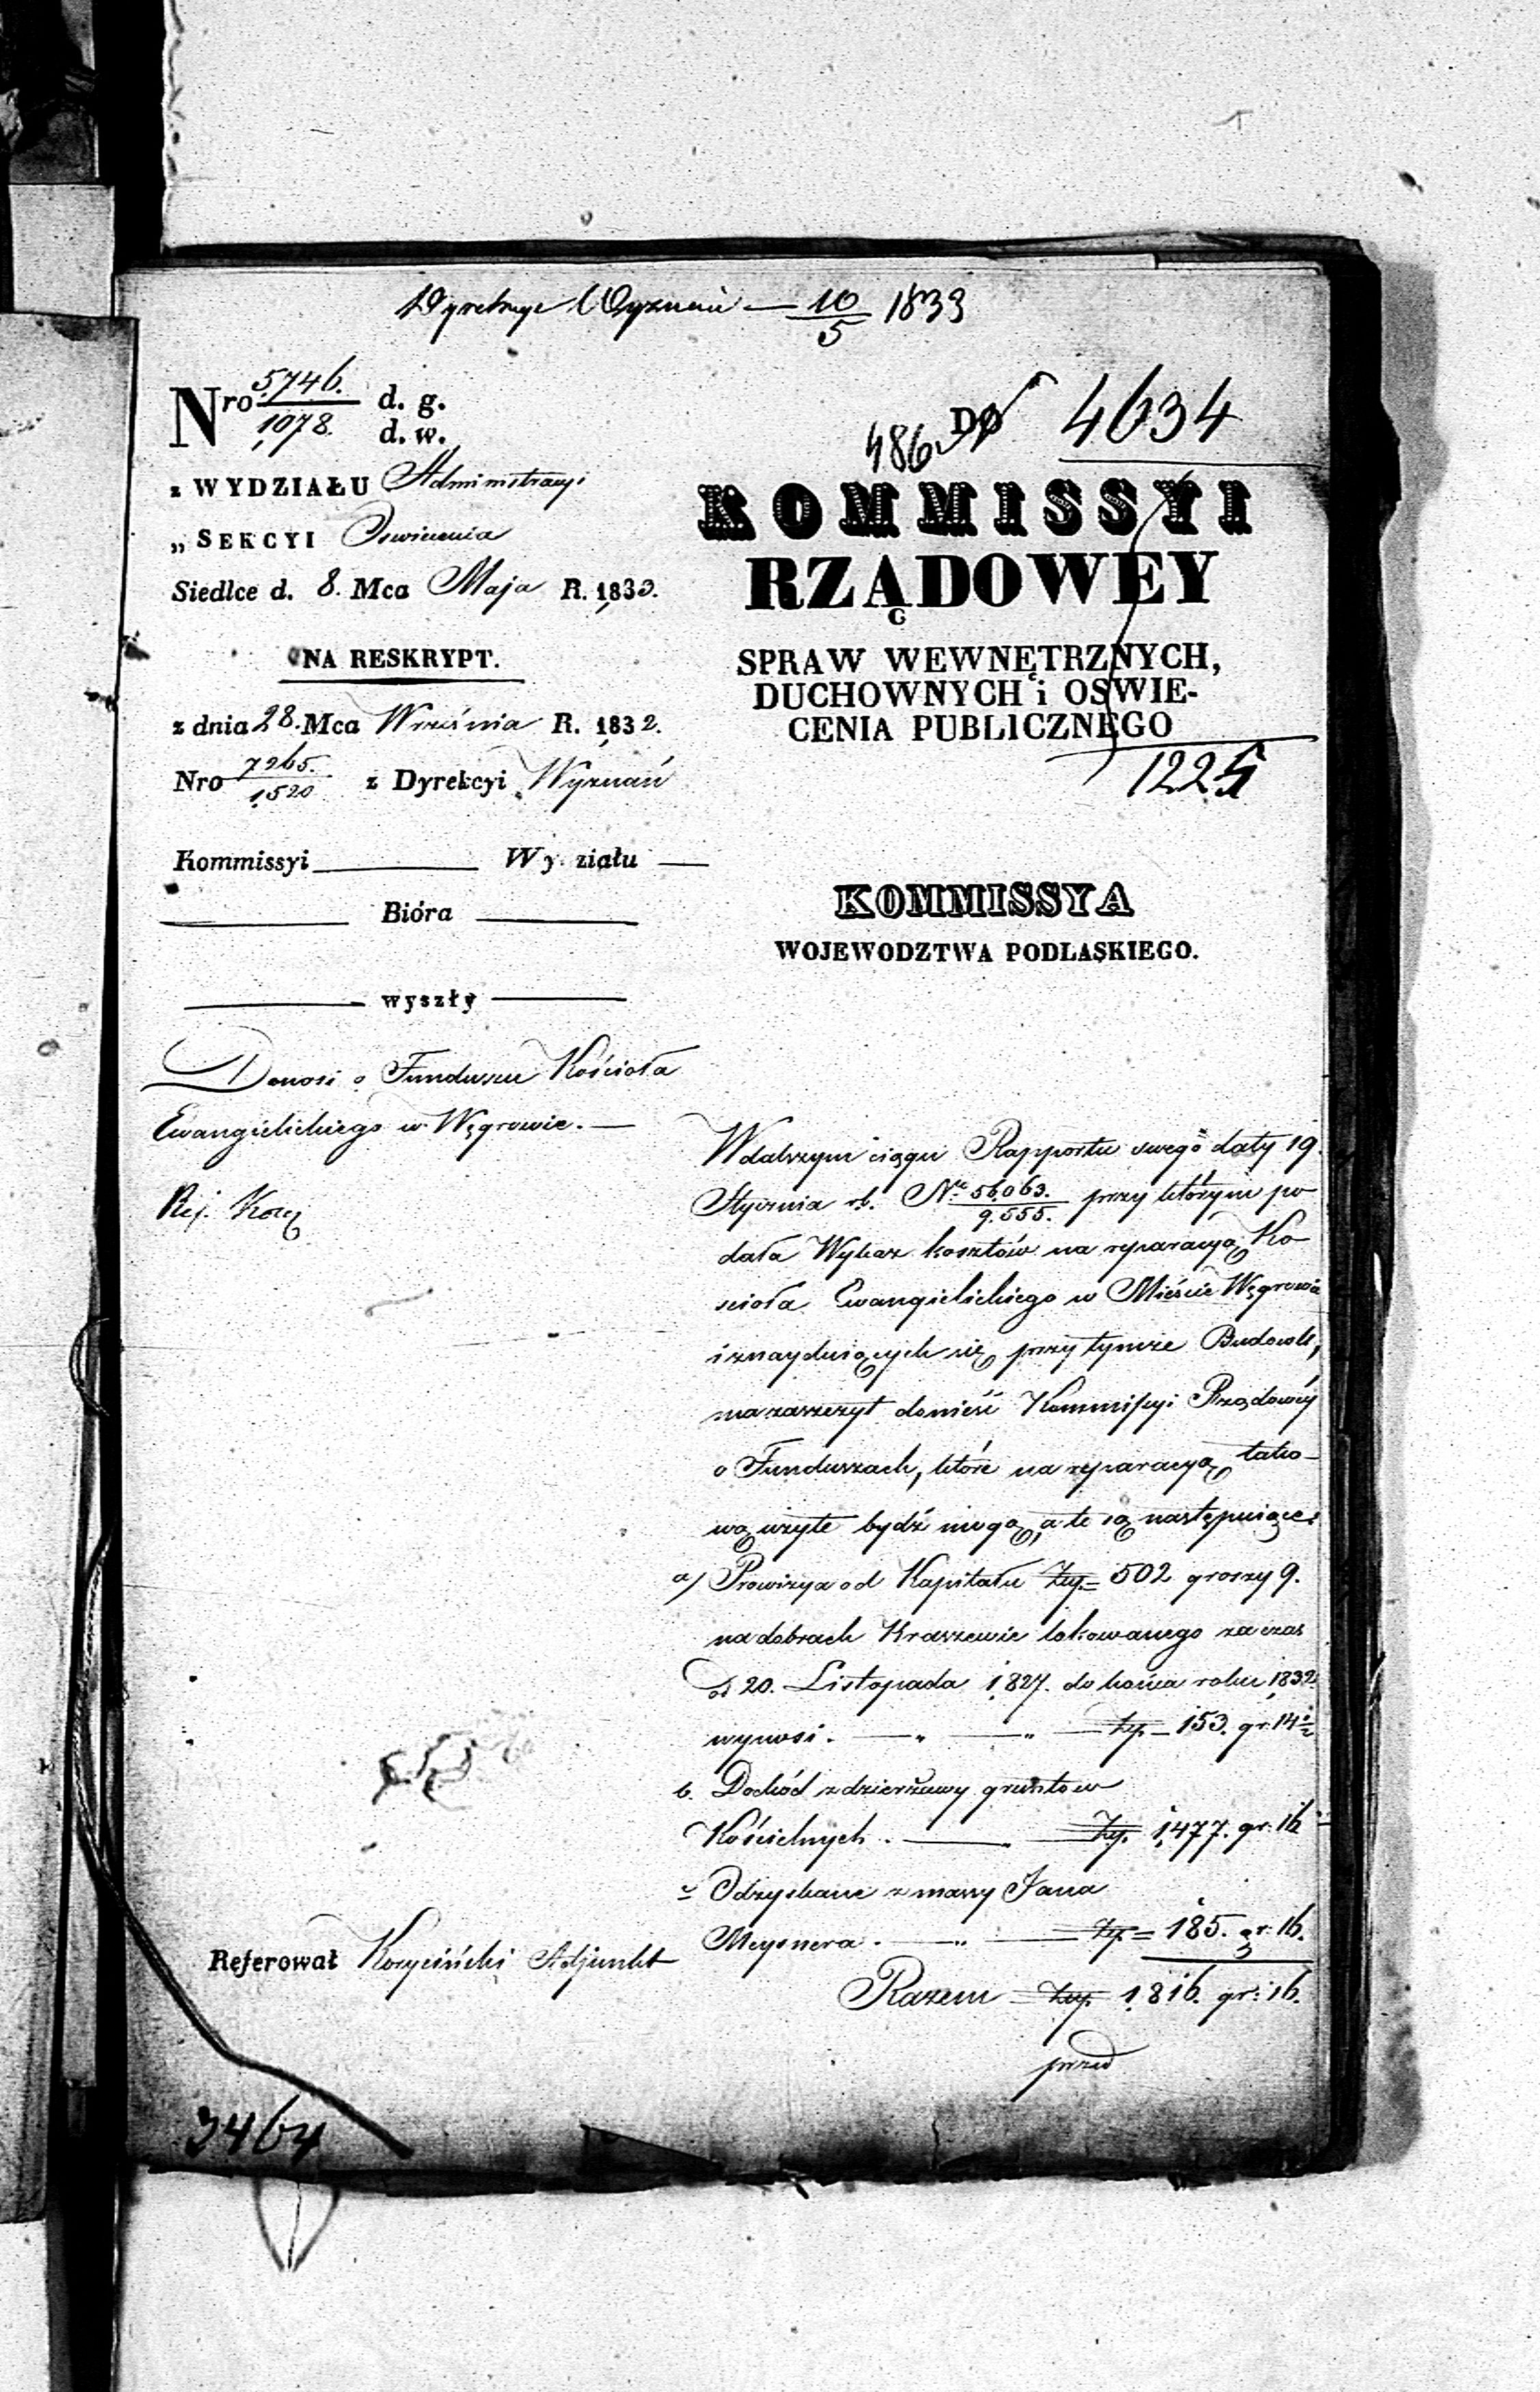 Dyrekcya Wyznań — 10/5 1833
Nro 5746./1078. d. g. d. w.
z WYDZIAŁU Administracyi
„ SEKCYI Oswiecenia
Siedlce d. 8. Mca Maja R. 1833.
NA RESKRYPT.
z dnia 28. Mca Września R. 1832.
Nro 7265./1520 z Dyrekcyi Wyznań
Kommissyi Wy ziału
Bióra
wyszły
Donosi o Funduszu Kościoła
Ewangielickiego w Węgrowie. —
Ref. Kory
Referował Koryciński Adjunkt
3464
DO 4634
486
KOMMISSYI
RZĄDOWEY
SPRAW WEWNĘTRZNYCH,
DUCHOWNYCH i OSWIE-
CENIA PUBLICZNEGO
1225
KOMMISSYA
WOJEWODZTWA PODLASKIEGO.
W dalszym ciągu Rapportu swego daty 19.
Stycznia rb. Nr. 56063./9.555. przy którym po
dała Wykaz kosztów na reparacyą Ko-
scioła Ewangielickiego w Mieście Węgrowie
i znayduiących się przy tymże Budowli,
ma zaszczyt donieść Kommissyi Rządowéy
o Funduszach, które na reparacyą tako-
wą użyte bydź mogą, a te są następuiące:
a/ Prowizya od Kapitału Złp. 502 groszy 9.
na dobrach Kraszewie lokowanego za czas
od 20. Listopada 1827. do końca roku 1832
wynosi . — „ — „ — Złp. 153. gr. 14½
b. Dochód z dzierżawy gruntow
Kościelnych . — „ — Złp. 1,477. gr. 16 -
c Odzyskane z massy Jana
Meysnera . — „ — Złp. 185. gr. 16.
Razem Złp. 1,816. gr. 16.
przed